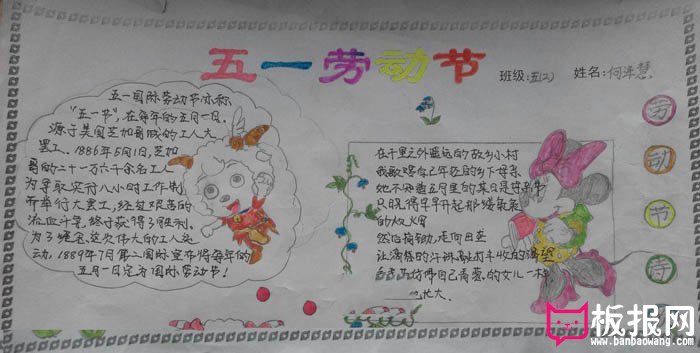 五一劳动节
班级:五(2) 姓名:何泽慧
五一国际劳动节亦称
"五一节",在每年的五月一日。
源于美国芝加哥城的工人大
罢工,1886年5月1日,芝加
哥的二十一万六千余名工人
为争取实行八小时工作制
而举行大罢工,经过艰苦的
流血斗争,终于获得了胜利。
为了纪念这次伟大的工人运
动,1889年7月第二国际宣布将每年的
五月一日定为国际劳动节!
在千里之外遥远的故乡小村
我敢赌我年轻的乡下母亲
她不知道五月里的某日是劳动节
只晓得早早开起那缕氤氲
的炊火
然后荷锄,走向田垄
让满怀的
自己
的女儿一样
地长大。
劳
动
节
诗
板报网
www.banbaowang.com